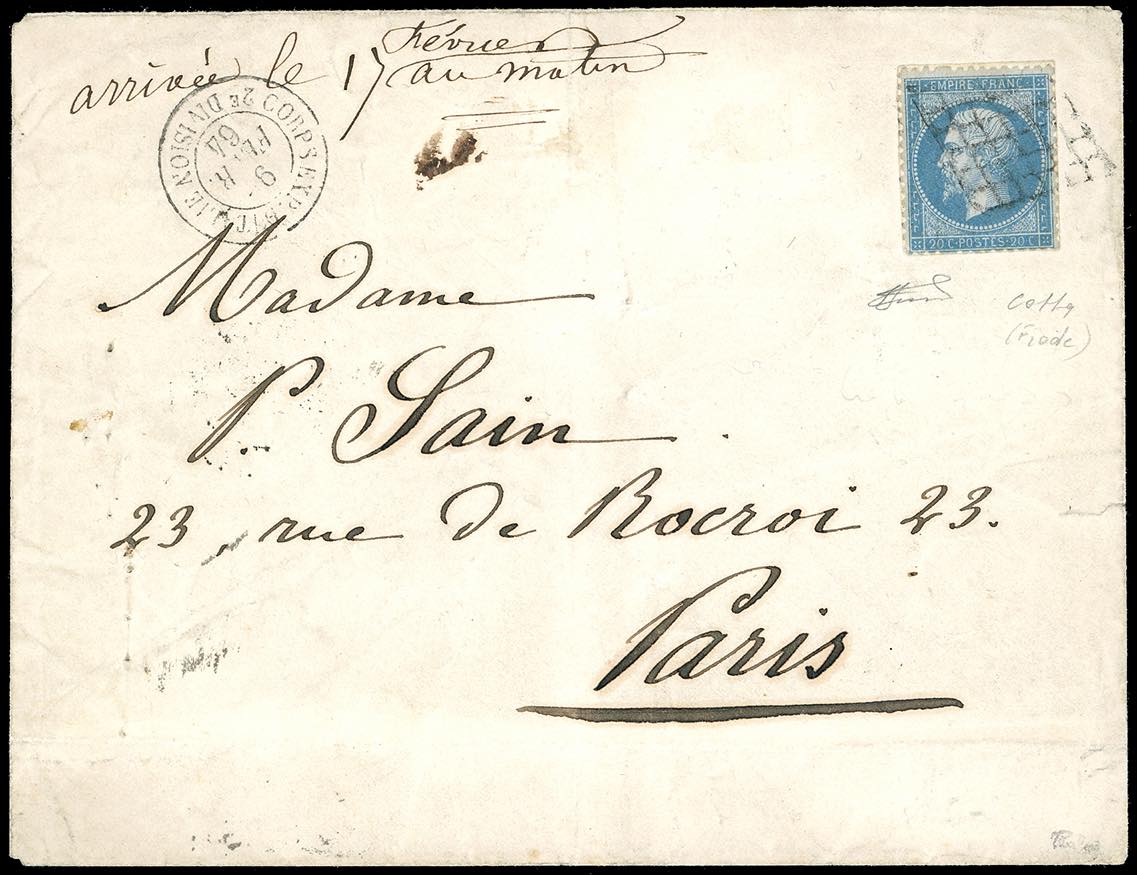 arrivée le 17 Février
au matin
CORPS EXP. D'ITALIE 2E DIVISION
9
FEVR
64
EMPIRE FRANC
20 C POSTES 20 C
Madame
P. Sain
23, rue de Rocroi 23.
Paris